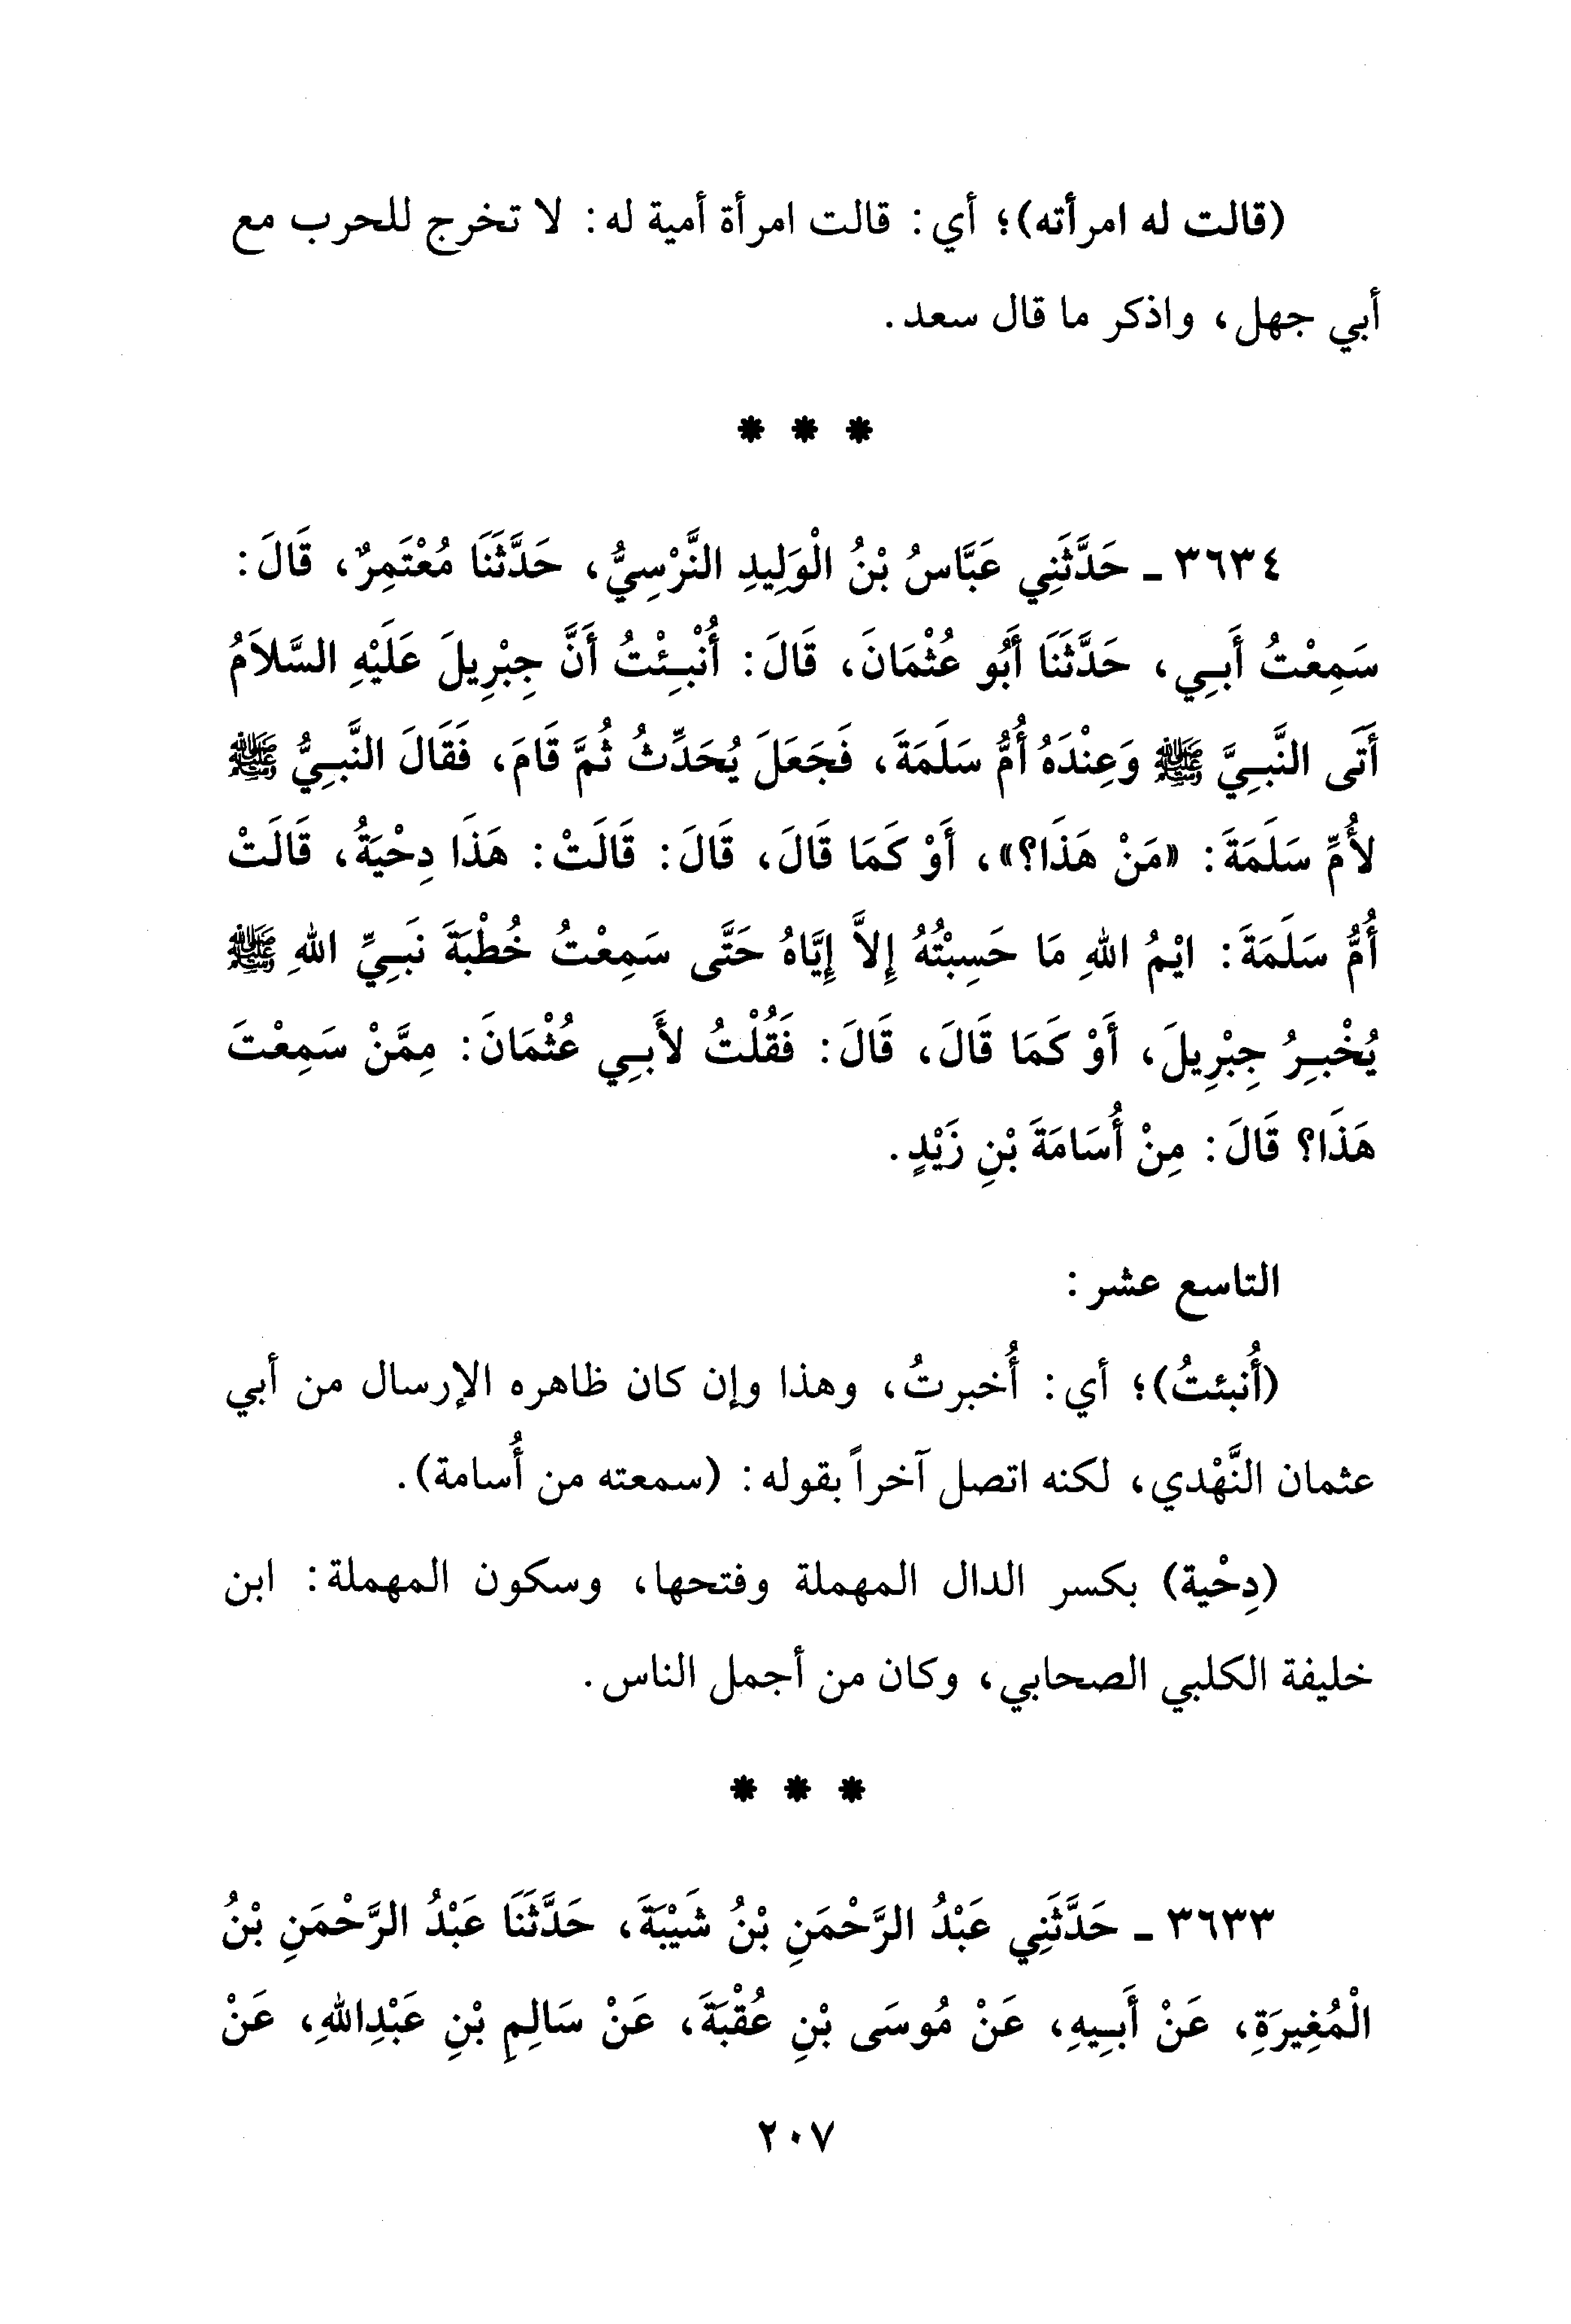 (قالت له امرأته)؛ أي: قالت امرأة أمية له: لا تخرج للحرب مع
أبي جهل، واذكر ما قال سعد.
* * *
٣٦٣٤ ـ حَدَّثَنِي عَبَّاسُ بْنُ الْوَلِيدِ النَّرْسِيُّ، حَدَّثَنَا مُعْتَمِرٌ، قَالَ:
سَمِعْتُ أَبِي، حَدَّثَنَا أَبُو عُثْمَانَ، قَالَ: أُنْبِئْتُ أَنَّ جِبْرِيلَ عَلَيْهِ السَّلاَمُ
أَتَى النَّبِيَّ ﷺ وَعِنْدَهُ أُمُّ سَلَمَةَ، فَجَعَلَ يُحَدِّثُ ثُمَّ قَامَ، فَقَالَ النَّبِيُّ ﷺ
لأُمِّ سَلَمَةَ: «مَنْ هَذَا؟»، أَوْ كَمَا قَالَ، قَالَ: قَالَتْ: هَذَا دِحْيَةُ، قَالَتْ
أُمُّ سَلَمَةَ: ايْمُ اللهِ مَا حَسِبْتُهُ إِلاَّ إِيَّاهُ حَتَّى سَمِعْتُ خُطْبَةَ نَبِيِّ اللهِ ﷺ
يُخْبِرُ جِبْرِيلَ، أَوْ كَمَا قَالَ، قَالَ: فَقُلْتُ لأَبِي عُثْمَانَ: مِمَّنْ سَمِعْتَ
هَذَا؟ قَالَ: مِنْ أُسَامَةَ بْنِ زَيْدٍ.
التاسع عشر:
(أُنبئتُ)؛ أي: أُخبرتُ، وهذا وإن كان ظاهره الإرسال من أبي
عثمان النَّهْدي، لكنه اتصل آخراً بقوله: (سمعته من أُسامة).
(دِحْية) بكسر الدال المهملة وفتحها، وسكون المهملة: ابن
خليفة الكلبي الصحابي، وكان من أجمل الناس.
* * *
٣٦٣٣ ـ حَدَّثَنِي عَبْدُ الرَّحْمَنِ بْنُ شَيْبَةَ، حَدَّثَنَا عَبْدُ الرَّحْمَنِ بْنُ
الْمُغِيرَةِ، عَنْ أَبِيهِ، عَنْ مُوسَى بْنِ عُقْبَةَ، عَنْ سَالِمِ بْنِ عَبْدِاللهِ، عَنْ
٢٠٧